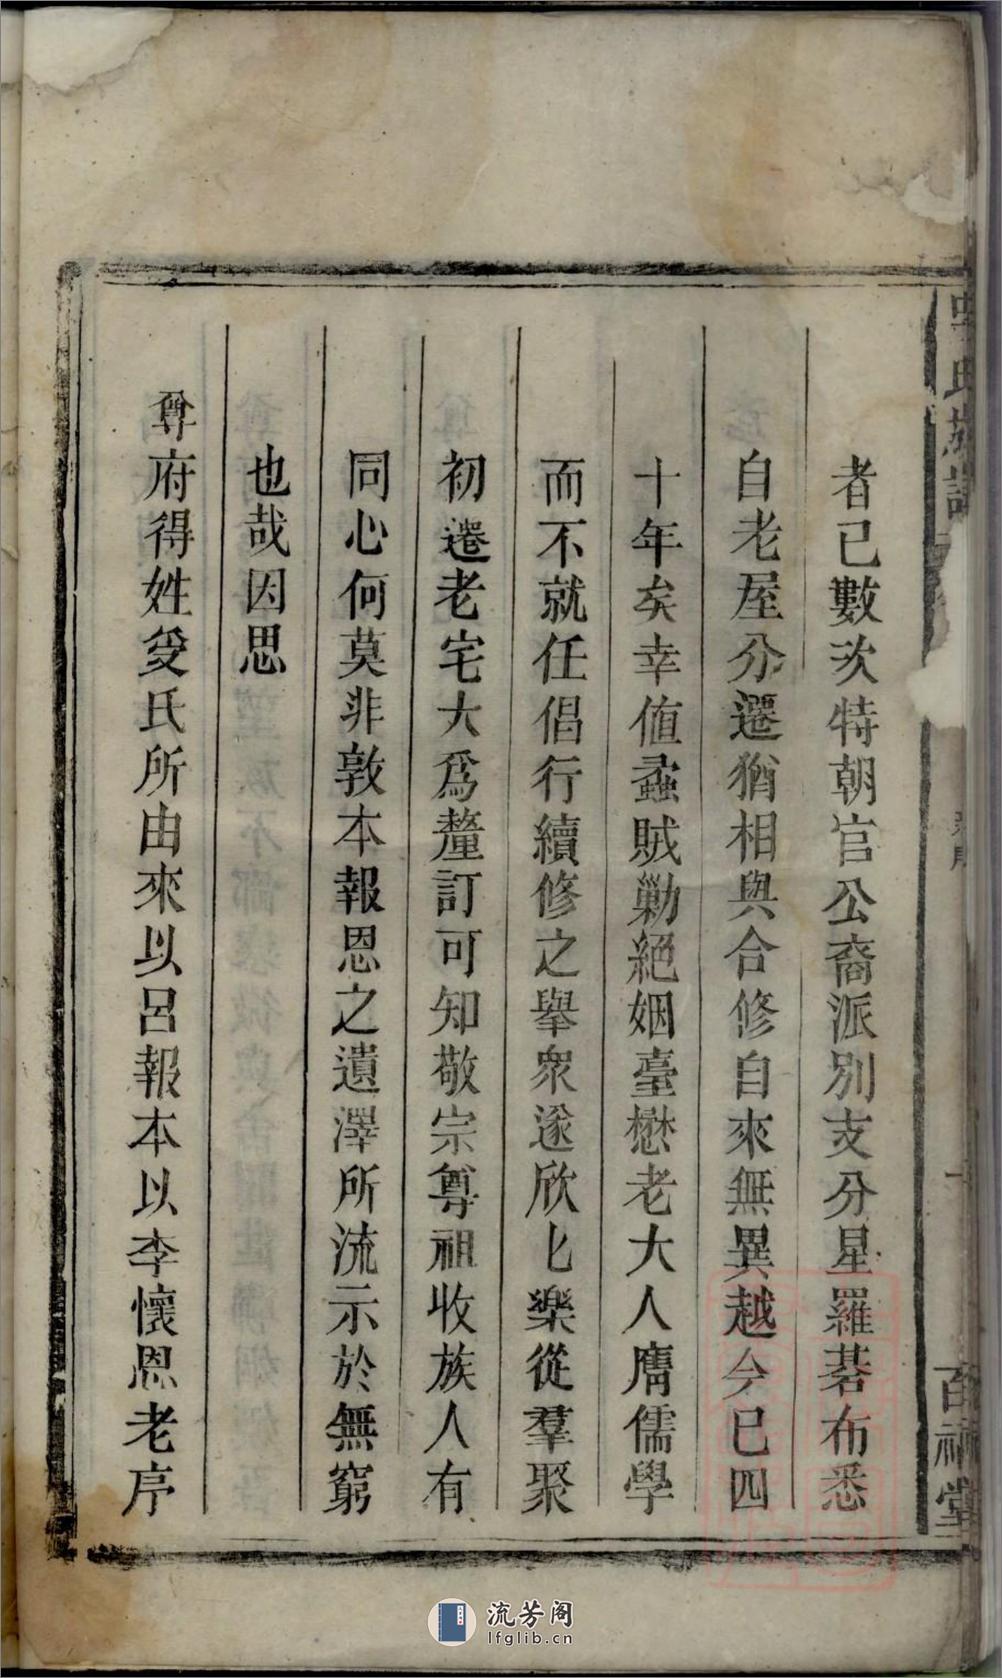 者已數次特朝官公裔派別支分星羅碁布悉
自老屋分遷猶相與合修自來無異越今已四
十年矣幸值蟊賊勦絕姻臺懋老大人膺儒學
而不就任倡行續修之舉衆遂欣匕樂從羣聚
初遷老宅大爲釐訂可知敬宗尊祖收族人有
同心何莫非敦本報恩之遺澤所流示於無窮
也哉因思
尊府得姓受氏所由來以呂報本以李懷恩老序
氏
百
堂
流芳阁
lfglib.cn